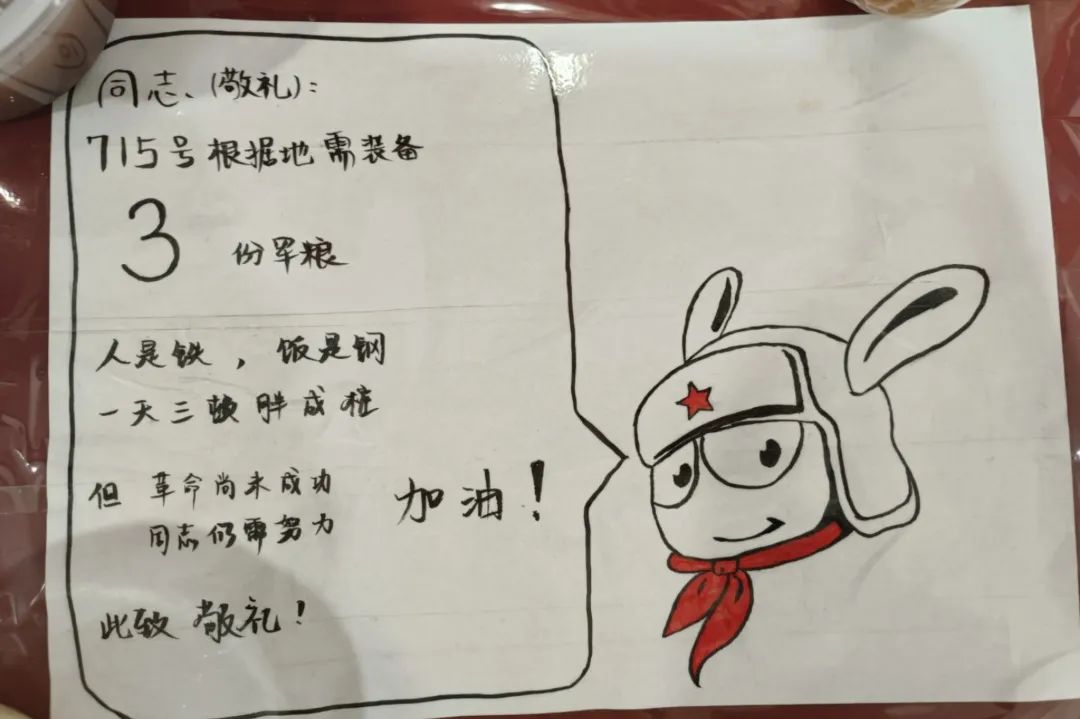 同志、(敬礼):
715号根据地需装备
3 份军粮
人是铁，饭是钢
一天三顿胖成桩
但 革命尚未成功
同志仍需努力
加油！
此致 敬礼！